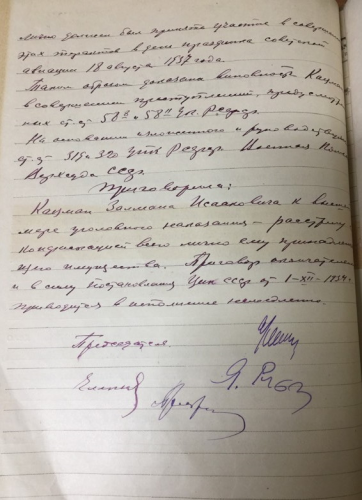 лично должен был принять участие в совершении
этих терактов в день праздника советской
авиации 18 августа 1937 года.
Таким образом доказана виновность Кацман
в совершении преступлений, предусмотрен-
ных ст.ст. 58⁸ и 58¹¹ УК РСФСР.
На основании изложенного и руководствуясь
ст.ст. 319 и 320 УПК РСФСР Военная Кол
Верхсуда СССР
Приговорила:
Кацман Залмана Исааковича к высшей
мере уголовного наказания – расстрелу
конфискацией всего лично ему принадлежа-
щего имущества. Приговор окончательный
и в силу постановления ЦИК СССР от 1-XII-1934г.
приводится в исполнение немедленно.
Председатель